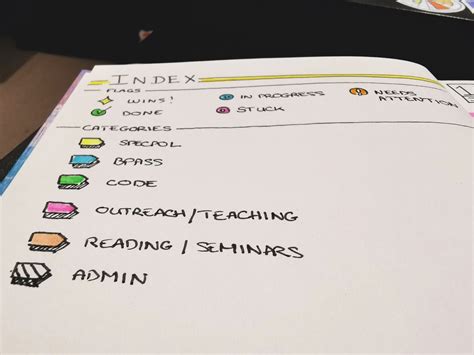 INDEX
FLAGS
WINS! IN PROGRESS ! NEEDS ATTENTION
DONE STUCK
CATEGORIES
SPECPOL
BPASS
CODE
OUTREACH/TEACHING
READING / SEMINARS
ADMIN